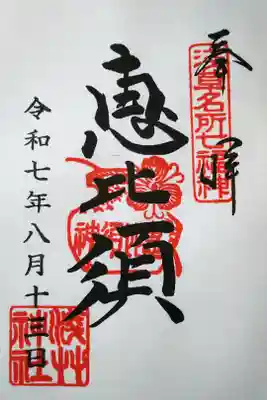 奉拝
浅草名所七福神
恵比須
令和七年八月十三日
浅草神社